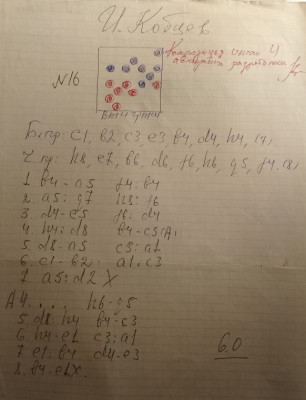 И. Кобцев
№16
Б. пр: c1, b2, c3, e3, b4, d4, h4,
Ч. пр: h8, e7, b6, d6, f6, h6, g5, f4. (8)
1. b4-a5 f4:b4
2. a5:g7 h8:f6
3. d4-e5 f6:d4
4. h4:d8 b4-c3(A)
5. d8-a5 c3:a1
6. c1-b2 a1:c3
7. a5:d2 X
A4. . . . h6-g5
5. d8:h4 b4-c3
6. h4-e1 c3:a1
7. e1-b4 d4-e3
8. b4-e1X.
6.0